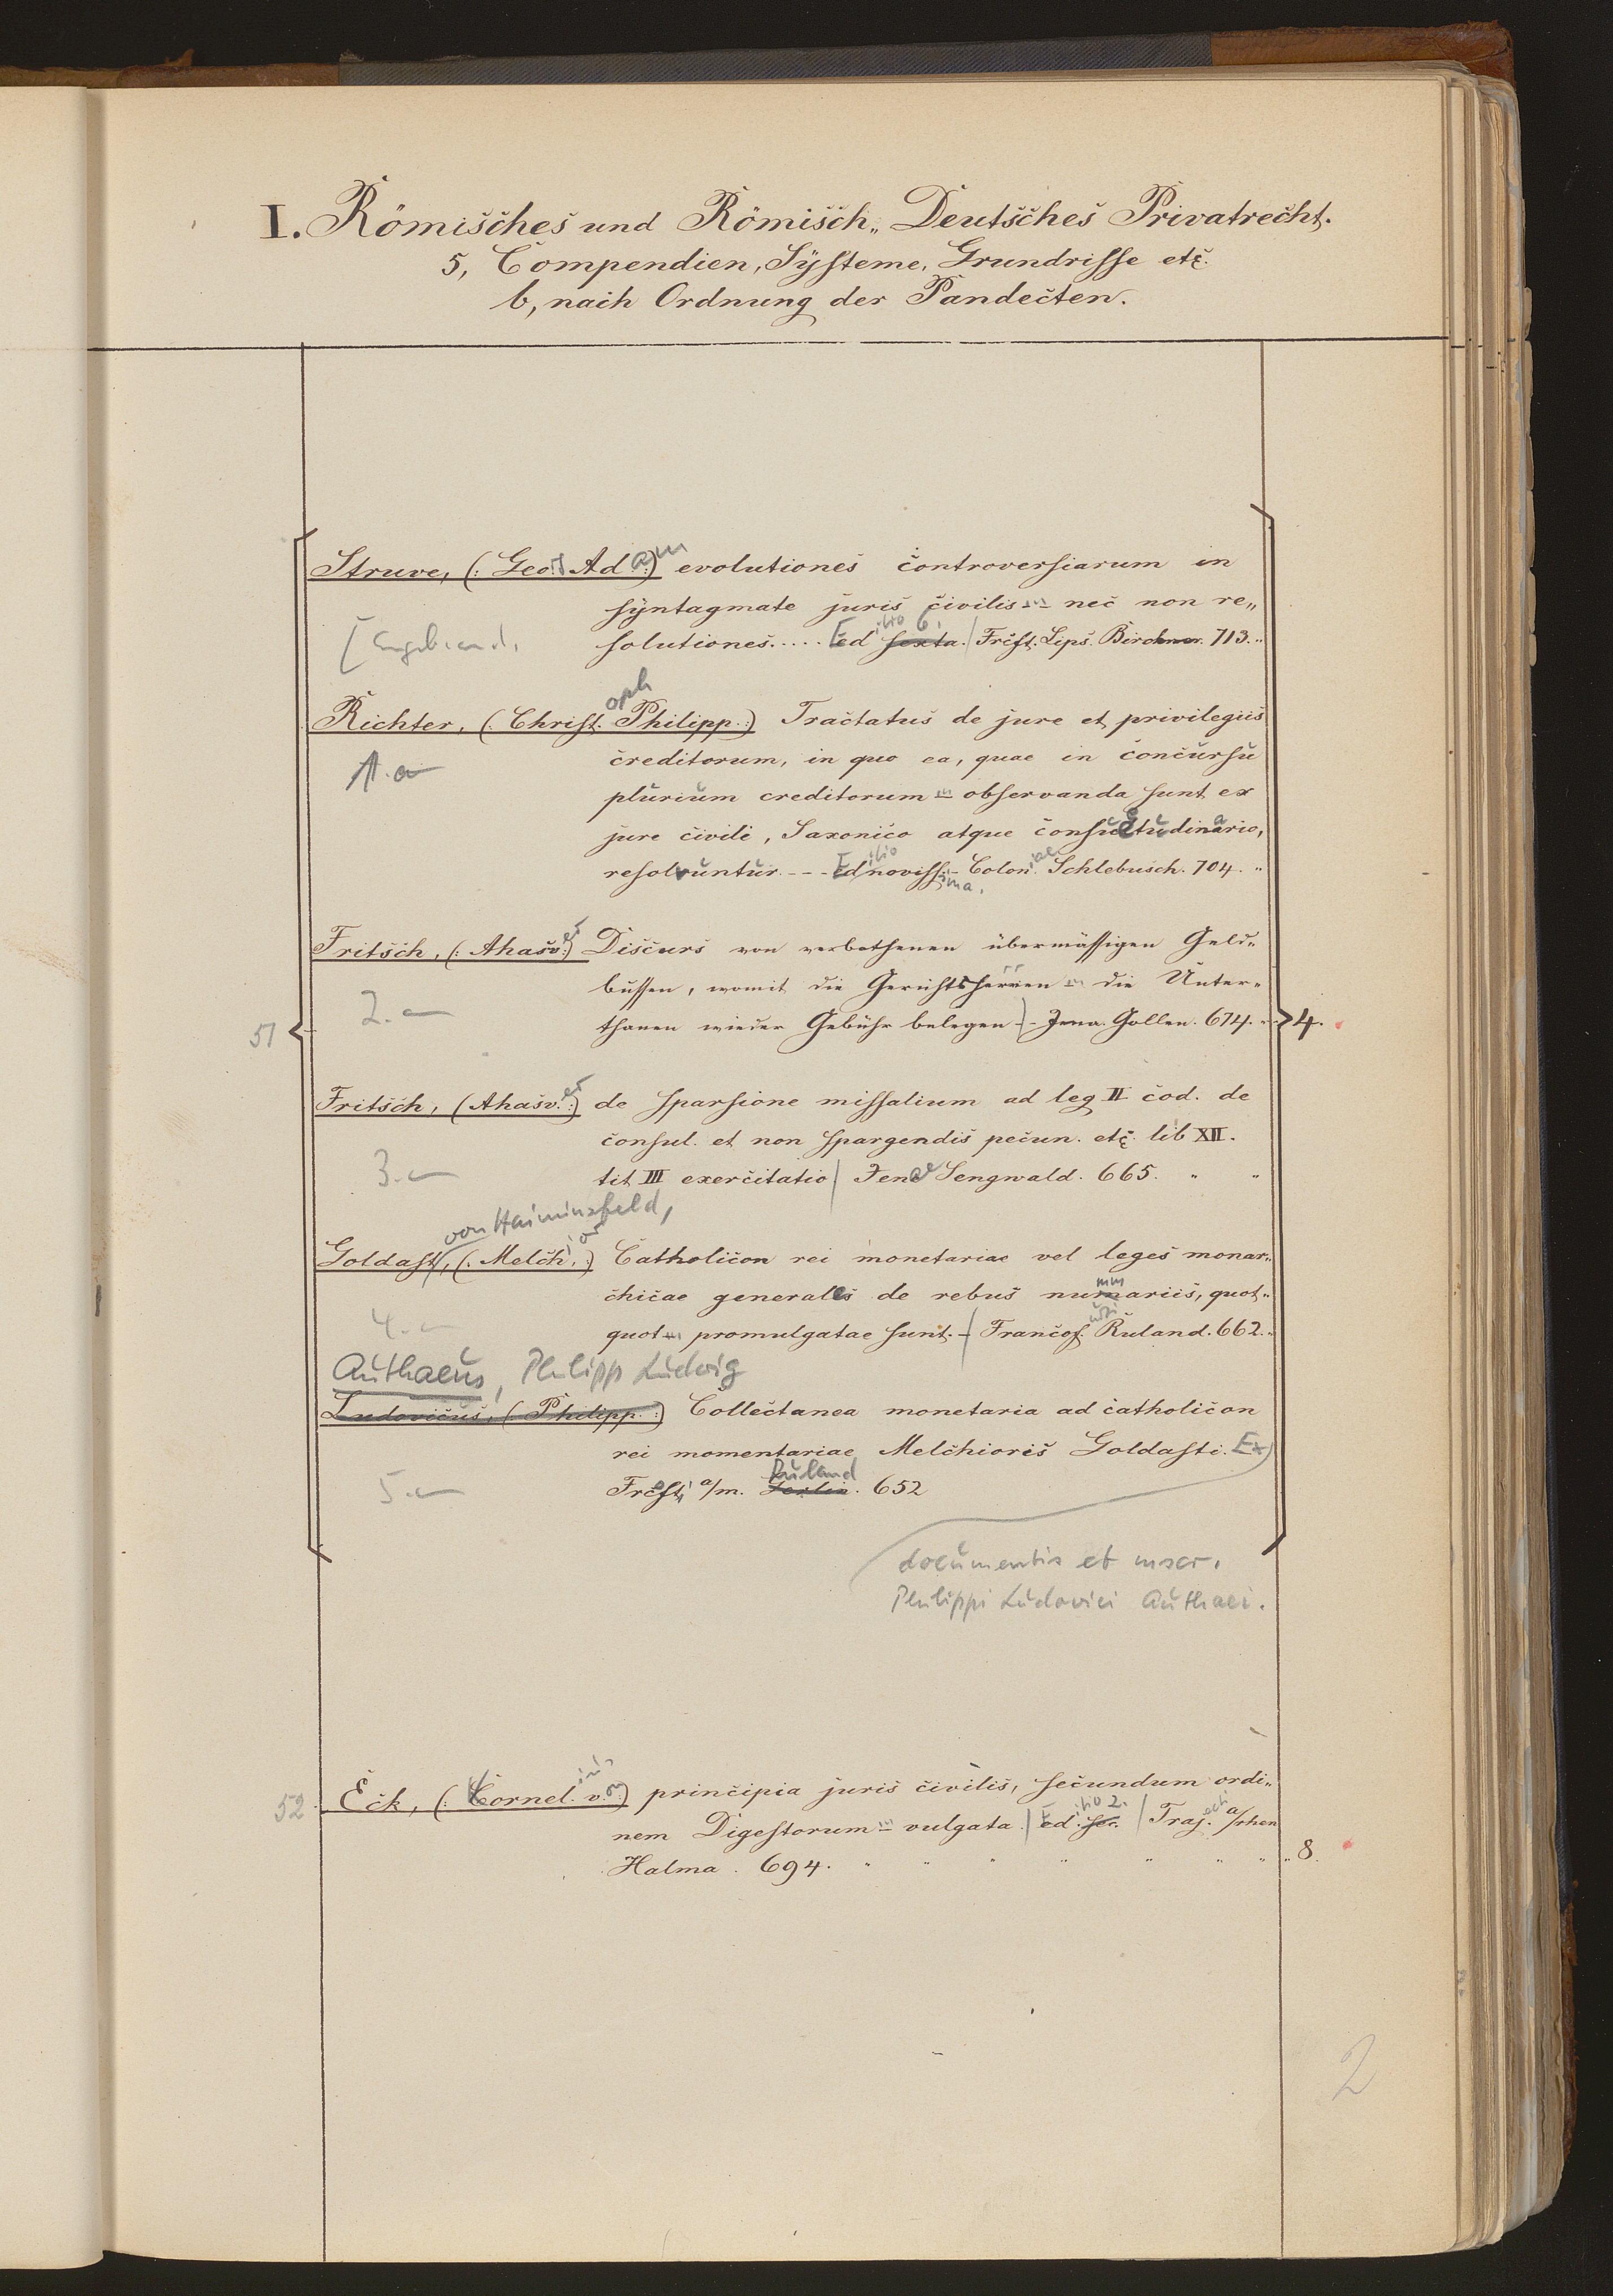 I. Römisches und Römisch„ Deutsches Privatrecht.
5, Compendien, Systeme, Grundrisse etc.
b, nach Ordnung der Pandecten.
Struve, (: Georg Adam :) evolutiones controversiarum in
syntagmate juris civilis nec non re„
solutiones..... Editio 6. sexta. Frcft. Lips. Birckner. 713.
Richter, (: Christoph Philipp :) Tractatus de jure et privilegiis
1. a
creditorum, in quo ea, quae in concursu
plurium creditorum observanda sunt ex
jure civili, Saxonico atque consuetudinario,
resolvuntur --- Editio novissima. Coloniae. Schlebusch. 704.
Fritsch, (: Ahasver :) Discurs von verbothenen übermässigen Geld„
bussen, womit die Gerichtsherren die Unter„
2. a
51
thanen wieder Gebühr belegen - Jena. Gollen. 674. 4.
Fritsch, (Ahasver :) de sparsione missalium ad leg II cod. de
consul. et non spargendis pecun. etc. lib XII.
3. a
tit III exercitatio / Jenae Sengwald. 665.
von Haiminsfeld,
Goldast, (: Melchior :) Catholicon rei monetariae vel leges monar„
chicae generales de rebus nummariis, quot„
4. a
quot promulgatae sunt. - Francofurti Ruland. 662.
Authaeus, Philipp Ludwig
Ludovicus, (: Philipp. :) Collectanea monetaria ad catholicon
rei momentariae Melchioris Goldasti. Ex
5. a
Frcft. a/m. Ruland 652
documentis et mscr.
Philippi Ludovici Authaei.
52
Eck, (: Cornelius v. :) principia juris civilis, secundum ordi„
nem Digestorum vulgata / Editio 2. sec. / Trajecti a/rhen
Halma. 694. 8.
2